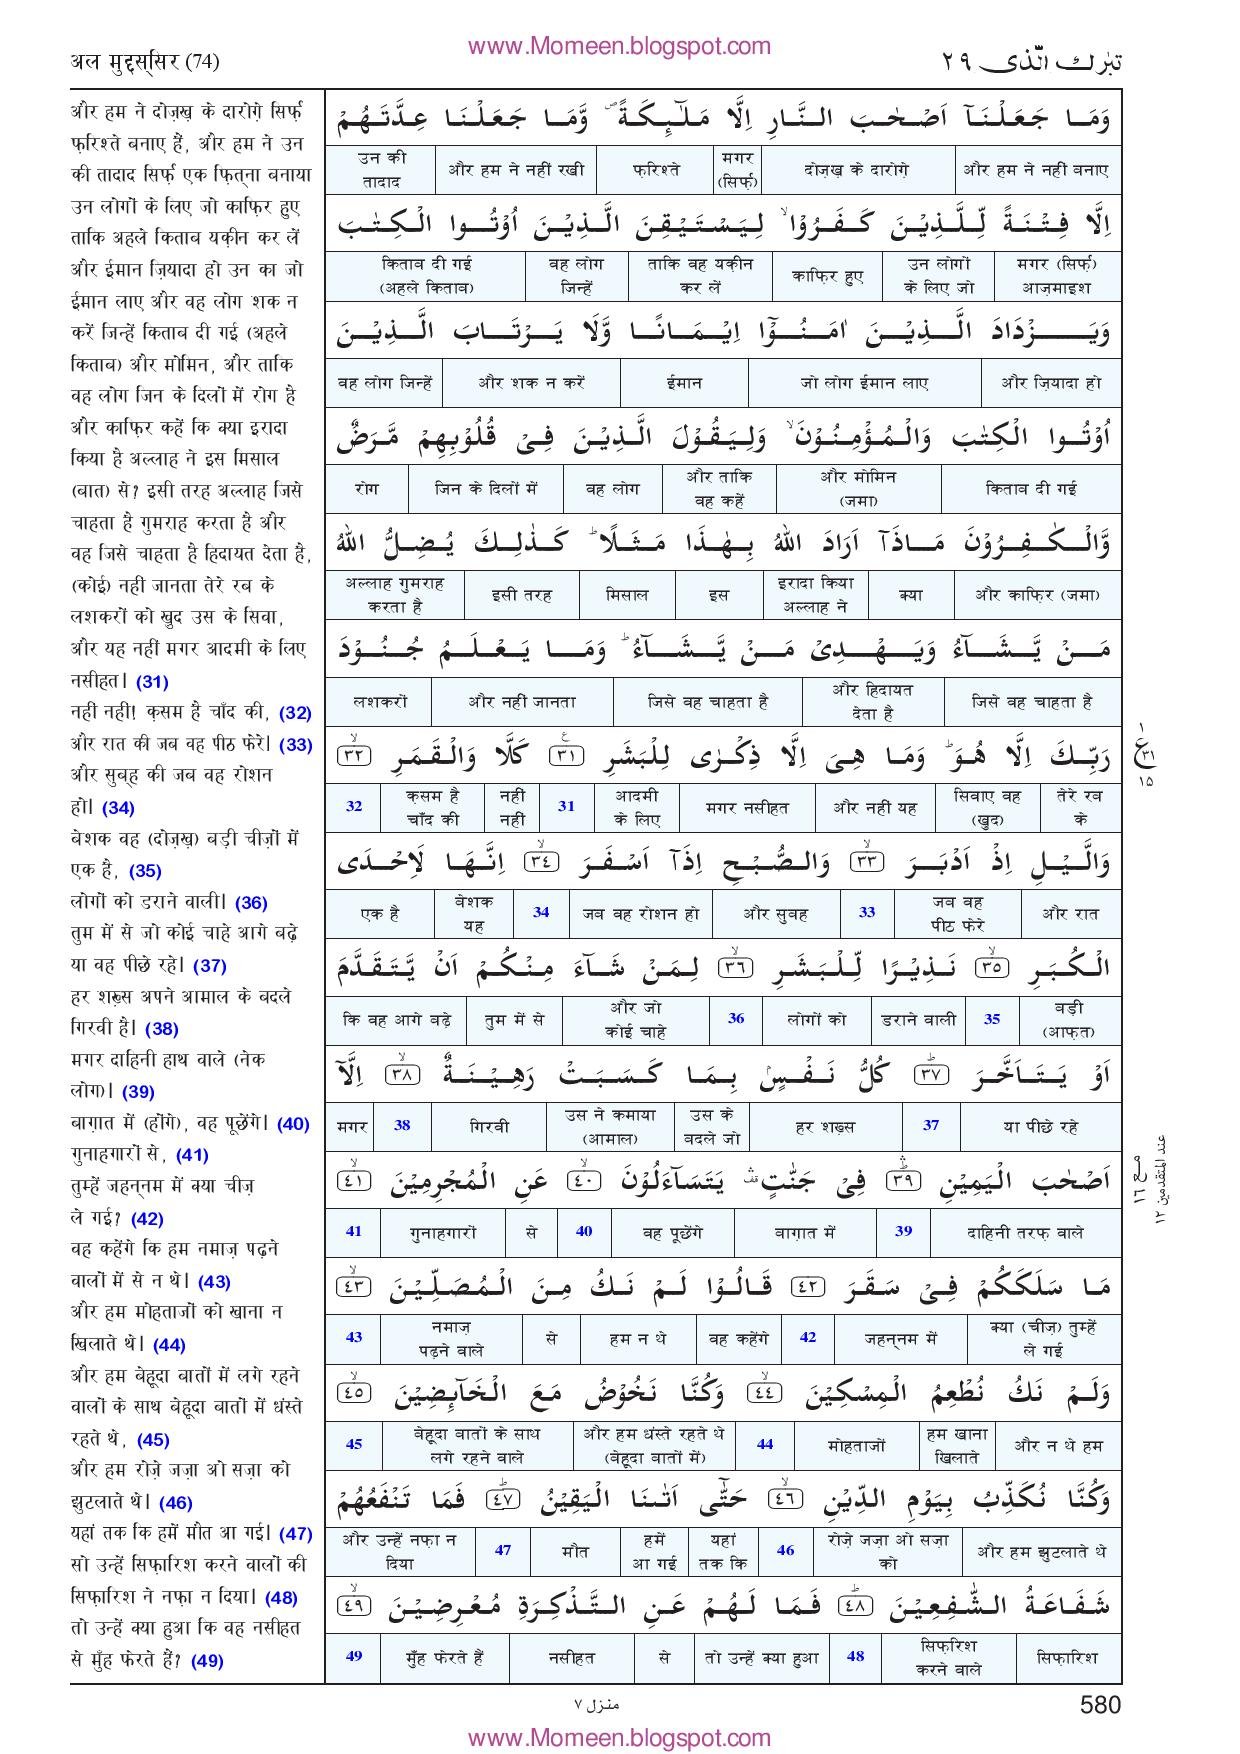 www.Momeen.blogspot.com
अल मुद्दस्सिर (74)
تبٰرك الّذى ٢٩
और हम ने दोज़ख़ के दारोग़े सिर्फ़
फ़रिश्ते बनाए हैं, और हम ने उन
की तादाद सिर्फ़ एक फ़ित्ना बनाया
उन लोगों के लिए जो काफ़िर हुए
ताकि अहले किताब यक़ीन कर लें
और ईमान ज़ियादा हो उन का जो
ईमान लाए और वह लोग शक न
करें जिन्हें किताब दी गई (अहले
किताब) और मोमिन, और ताकि
वह लोग जिन के दिलों में रोग है
और काफ़िर कहें कि क्या इरादा
किया है अल्लाह ने इस मिसाल
(बात) से? इसी तरह अल्लाह जिसे
चाहता है गुमराह करता है और
वह जिसे चाहता है हिदायत देता है,
(कोई) नहीं जानता तेरे रब के
लशकरों को खुद उस के सिवा,
और यह नहीं मगर आदमी के लिए
नसीहत। (31)
नहीं नहीं! क़सम है चाँद की, (32)
और रात की जब वह पीठ फेरे। (33)
और सुबह की जब वह रोशन
हो। (34)
बेशक वह (दोज़ख़) बड़ी चीज़ों में
एक है, (35)
लोगों को डराने वाली। (36)
तुम में से जो कोई चाहे आगे बढ़े
या वह पीछे रहे। (37)
हर शख़्स अपने आमाल के बदले
गिरवी है। (38)
मगर दाहिनी हाथ वाले (नेक
लोग)। (39)
बाग़ात में (होंगे), वह पूछेंगे। (40)
गुनाहगारों से, (41)
तुम्हें जहन्नम में क्या चीज़
ले गई? (42)
वह कहेंगे कि हम नमाज़ पढ़ने
वालों में से न थे। (43)
और हम मोहताजों को खाना न
खिलाते थे। (44)
और हम बेहूदा बातों में लगे रहने
वालों के साथ बेहूदा बातों में धंस्ते
रहते थे, (45)
और हम रोज़े जज़ा ओ सज़ा को
झुटलाते थे। (46)
यहां तक कि हमें मौत आ गई। (47)
सो उन्हें सिफ़ारिश करने वालों की
सिफ़ारिश ने नफ़ा न दिया। (48)
तो उन्हें क्या हुआ कि वह नसीहत
से मुँह फेरते हैं? (49)
وَمَا جَعَلْنَآ اَصْحٰبَ النَّارِ اِلَّا مَلٰٓئِكَةً ۖ وَّمَا جَعَلْنَا عِدَّتَهُمْ
और हम ने नहीं बनाए दोज़ख़ के दारोग़े मगर (सिर्फ़) फ़रिश्ते और हम ने नहीं रखी उन की तादाद
اِلَّا فِتْنَةً لِّلَّذِيْنَ كَفَرُوْا ۙ لِيَسْتَيْقِنَ الَّذِيْنَ اُوْتُوا الْكِتٰبَ
मगर (सिर्फ़) आज़माइश उन लोगों के लिए जो काफ़िर हुए ताकि वह यक़ीन कर लें वह लोग जिन्हें किताब दी गई (अहले किताब)
وَيَزْدَادَ الَّذِيْنَ اٰمَنُوْٓا اِيْمَانًا وَّلَا يَرْتَابَ الَّذِيْنَ
और ज़ियादा हो जो लोग ईमान लाए ईमान और शक न करें वह लोग जिन्हें
اُوْتُوا الْكِتٰبَ وَالْمُؤْمِنُوْنَ ۙ وَلِيَقُوْلَ الَّذِيْنَ فِيْ قُلُوْبِهِمْ مَّرَضٌ
किताब दी गई और मोमिन (जमा) और ताकि वह कहें वह लोग जिन के दिलों में रोग
وَّالْكٰفِرُوْنَ مَاذَآ اَرَادَ اللّٰهُ بِهٰذَا مَثَلًا ؕ كَذٰلِكَ يُضِلُّ اللّٰهُ
और काफ़िर (जमा) क्या इरादा किया अल्लाह ने इस मिसाल इसी तरह अल्लाह गुमराह करता है
مَنْ يَّشَآءُ وَيَهْدِيْ مَنْ يَّشَآءُ ؕ وَمَا يَعْلَمُ جُنُوْدَ
जिसे वह चाहता है और हिदायत देता है जिसे वह चाहता है और नहीं जानता लशकरों
رَبِّكَ اِلَّا هُوَ ؕ وَمَا هِيَ اِلَّا ذِكْرٰى لِلْبَشَرِ ٣١ كَلَّا وَالْقَمَرِ ٣٢
तेरे रब के सिवाए वह (खुद) और नहीं यह मगर नसीहत आदमी के लिए 31 नहीं नहीं क़सम है चाँद की 32
وَالَّيْلِ اِذْ اَدْبَرَ ٣٣ وَالصُّبْحِ اِذَآ اَسْفَرَ ٣٤ اِنَّهَا لَاِحْدَى
और रात जब वह पीठ फेरे 33 और सुबह जब वह रोशन हो 34 बेशक यह एक है
الْكُبَرِ ٣٥ نَذِيْرًا لِّلْبَشَرِ ٣٦ لِمَنْ شَآءَ مِنْكُمْ اَنْ يَّتَقَدَّمَ
बड़ी (आफ़त) 35 डराने वाली लोगों को 36 और जो कोई चाहे तुम में से कि वह आगे बढ़े
اَوْ يَتَاَخَّرَ ٣٧ كُلُّ نَفْسٍۭ بِمَا كَسَبَتْ رَهِيْنَةٌ ٣٨ اِلَّآ
या पीछे रहे 37 हर शख़्स उस के बदले जो उस ने कमाया (आमाल) गिरवी 38 मगर
اَصْحٰبَ الْيَمِيْنِ ٣٩ فِيْ جَنّٰتٍ يَتَسَآءَلُوْنَ ٤٠ عَنِ الْمُجْرِمِيْنَ ٤١
दाहिनी तरफ़ वाले 39 बाग़ात में वह पूछेंगे 40 से गुनाहगारों 41
مَا سَلَكَكُمْ فِيْ سَقَرَ ٤٢ قَالُوْا لَمْ نَكُ مِنَ الْمُصَلِّيْنَ ٤٣
क्या (चीज़) तुम्हें ले गई जहन्नम में 42 वह कहेंगे हम न थे से नमाज़ पढ़ने वाले 43
وَلَمْ نَكُ نُطْعِمُ الْمِسْكِيْنَ ٤٤ وَكُنَّا نَخُوْضُ مَعَ الْخَآئِضِيْنَ ٤٥
और न थे हम हम खाना खिलाते मोहताजों 44 और हम धंस्ते रहते थे (बेहूदा बातों में) बेहूदा बातों के साथ लगे रहने वाले 45
وَكُنَّا نُكَذِّبُ بِيَوْمِ الدِّيْنِ ٤٦ حَتّٰٓى اَتٰىنَا الْيَقِيْنُ ٤٧ فَمَا تَنْفَعُهُمْ
और हम झुटलाते थे रोज़े जज़ा ओ सज़ा को 46 यहां तक कि हमें आ गई मौत 47 और उन्हें नफ़ा न दिया
شَفَاعَةُ الشّٰفِعِيْنَ ٤٨ فَمَا لَهُمْ عَنِ التَّذْكِرَةِ مُعْرِضِيْنَ ٤٩
सिफ़ारिश सिफ़ारिश करने वाले 48 तो उन्हें क्या हुआ से नसीहत मुँह फेरते हैं 49
١
ع
٣١
١٥
مع ١٦
عند المتقدمين ١٢
منزل ٧
580
www.Momeen.blogspot.com